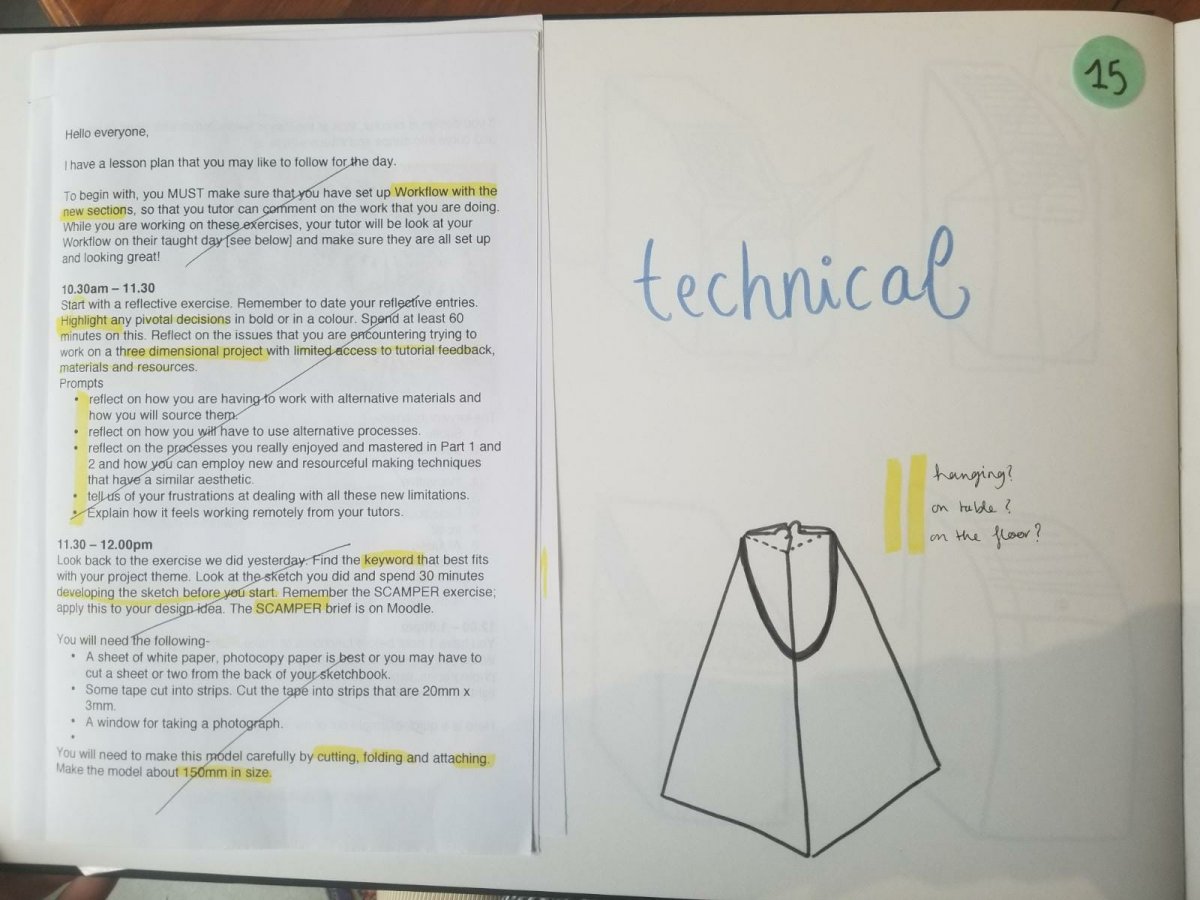 Hello everyone,
I have a lesson plan that you may like to follow for the day.
To begin with, you MUST make sure that you have set up Workflow with the
new sections, so that you tutor can comment on the work that you are doing.
While you are working on these exercises, your tutor will be look at your
Workflow on their taught day [see below] and make sure they are all set up
and looking great!
10.30am – 11.30
Start with a reflective exercise. Remember to date your reflective entries.
Highlight any pivotal decisions in bold or in a colour. Spend at least 60
minutes on this. Reflect on the issues that you are encountering trying to
work on a three dimensional project with limited access to tutorial feedback,
materials and resources.
Prompts
• reflect on how you are having to work with alternative materials and
how you will source them.
• reflect on how you will have to use alternative processes.
• reflect on the processes you really enjoyed and mastered in Part 1 and
2 and how you can employ new and resourceful making techniques
that have a similar aesthetic.
• tell us of your frustrations at dealing with all these new limitations.
• Explain how it feels working remotely from your tutors.
11.30 – 12.00pm
Look back to the exercise we did yesterday. Find the keyword that best fits
with your project theme. Look at the sketch you did and spend 30 minutes
developing the sketch before you start. Remember the SCAMPER exercise;
apply this to your design idea. The SCAMPER brief is on Moodle.
You will need the following-
• A sheet of white paper, photocopy paper is best or you may have to
cut a sheet or two from the back of your sketchbook.
• Some tape cut into strips. Cut the tape into strips that are 20mm x
3mm.
• A window for taking a photograph.
•
You will need to make this model carefully by cutting, folding and attaching.
Make the model about 150mm in size.
15
technical
hanging?
on table?
on the floor?